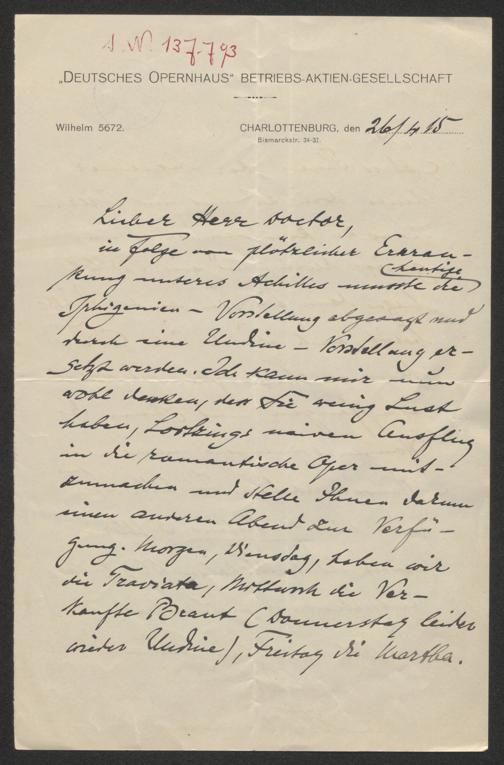 I. N. 137.793
„DEUTSCHES OPERNHAUS“ BETRIEBS-AKTIEN-GESELLSCHAFT
Wilhelm 5672.
CHARLOTTENBURG, den 26/4 15
Bismarckstr. 34-37.
Lieber Herr Doctor,
in Folge von plötzlicher Erkran-
kung unseres Achilles musste die heutige
Iphigenien - Vorstellung abgesagt und
durch eine Undine - Vorstellung er-
setzt werden. Ich kann mir nun
wohl denken, dass Sie wenig Lust
haben, Lortzings naiven Ausflug
in die romantische Oper mit-
zumachen und stelle Ihnen darum
einen anderen Abend zur Verfü-
gung. Morgen, Dienstag, haben wir
die Traviata, Mittwoch die Ver-
kaufte Braut (Donnerstag leider
wieder Undine), Freitag die Martha.